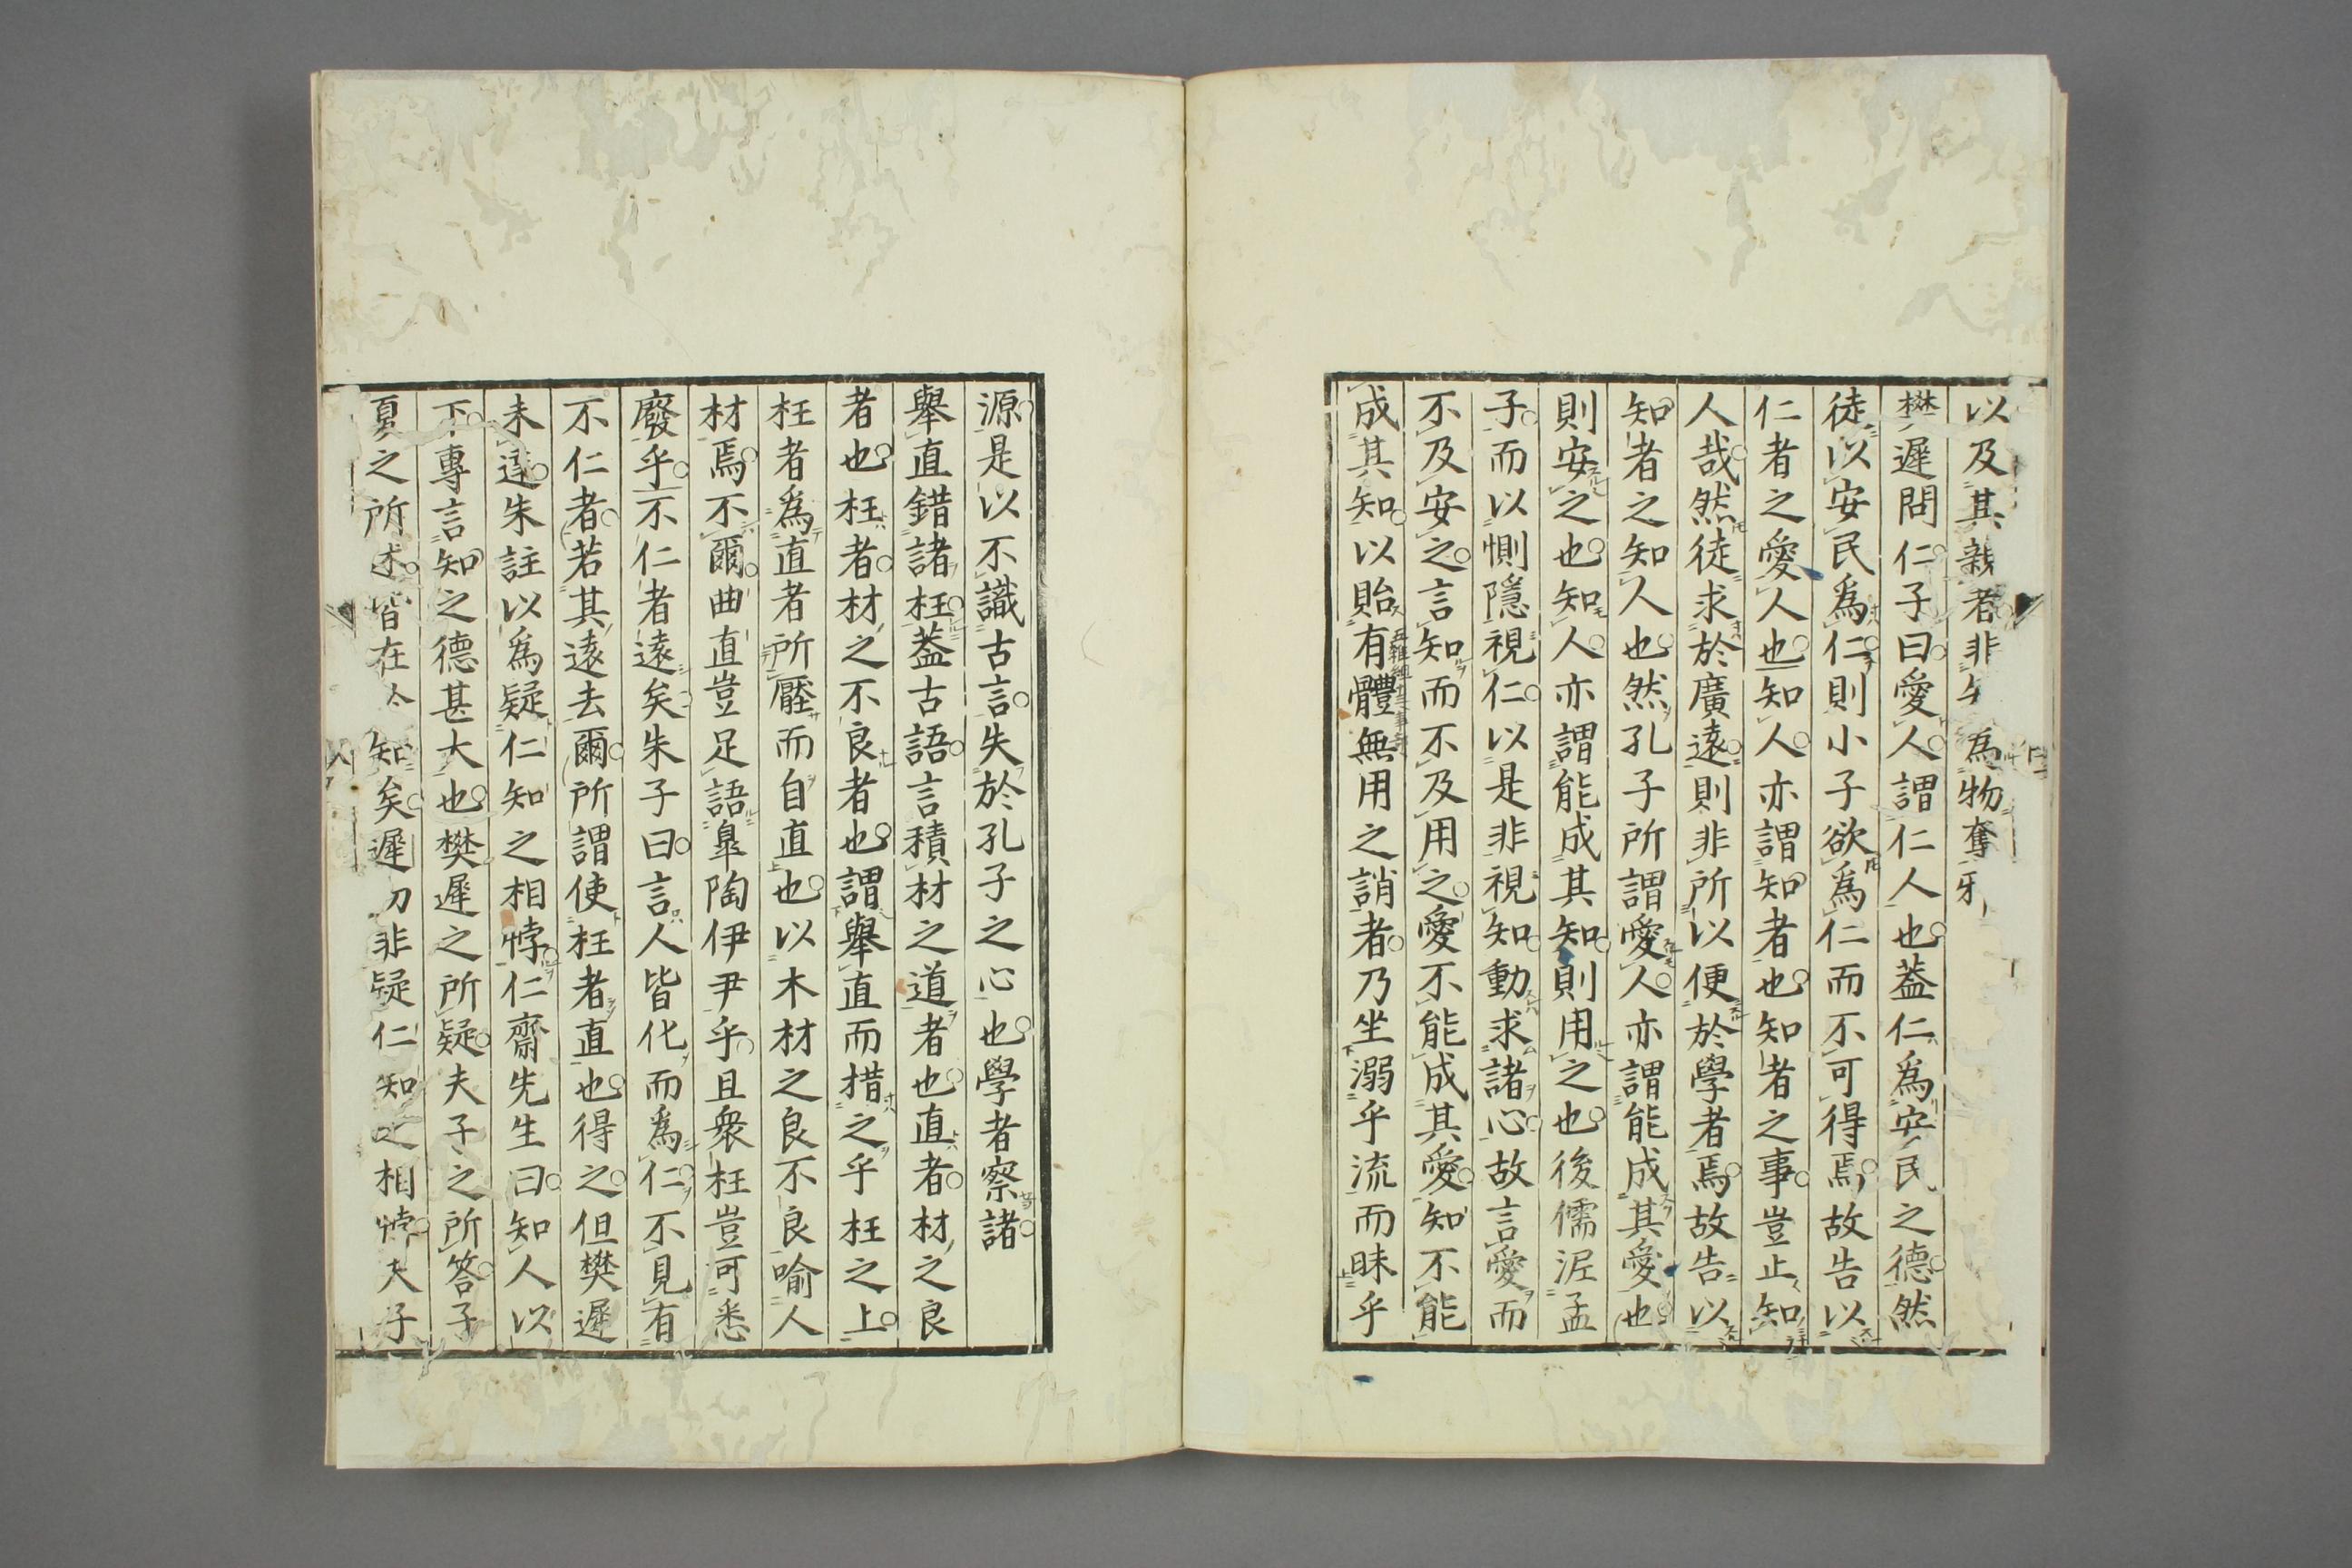 以及其親者非 爲物奪
樊遲問仁子曰愛人謂仁人也蓋仁爲安民之德然
徒以安民爲仁則小子欲爲仁而不可得焉故告以
仁者之愛人也知人亦謂知者也知者之事豈止知
人哉然徒求於廣遠則非所以便於學者焉故告以
知者之知人也然孔子所謂愛人亦謂能成其愛也
則安之也知人亦謂能成其知則用之也後儒泥孟
子而以惻隱視仁以是非視知動求諸心故言愛而
不及安之言知而不及用之愛不能成其愛知不能
成其知以貽有體無用之誚者乃坐溺乎流而昧乎
源是以不識古言失於孔子之心也學者察諸
舉直錯諸枉蓋古語言積材之道者也直者材之良
者也枉者材之不良者也謂舉直而措之乎枉之上
枉者爲直者所壓而自直也以木材之良不良喻人
材焉不爾曲直豈足語皐陶伊尹乎且衆枉豈可悉
廢乎不仁者遠矣朱子曰言人皆化而爲仁不見有
不仁者若其遠去爾所謂使枉者直也得之但樊遲
未達朱註以爲疑仁知之相悖仁齋先生曰知人以
下專言知之德甚大也樊遲之所疑夫子之所答子
夏之所述皆在 知矣遲 非疑仁知之相悖夫子